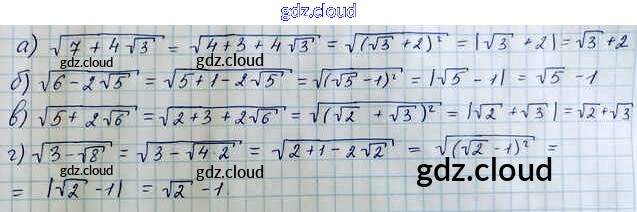 gdz.cloud
а) √(7 + 4√3) = √(4 + 3 + 4√3) = √((√3 + 2)²) = |√3 + 2| = √3 + 2
gdz.cloud
б) √(6 - 2√5) = √(5 + 1 - 2√5) = √((√5 - 1)²) = |√5 - 1| = √5 - 1
в) √(5 + 2√6) = √(2 + 3 + 2√6) = √((√2 + √3)²) = |√2 + √3| = √2 + √3
г) √(3 - √8) = √(3 - √4·2) = √(2 + 1 - 2√2) = √((√2 - 1)²) =
= |√2 - 1| = √2 - 1.
gdz.cloud
gdz.cloud